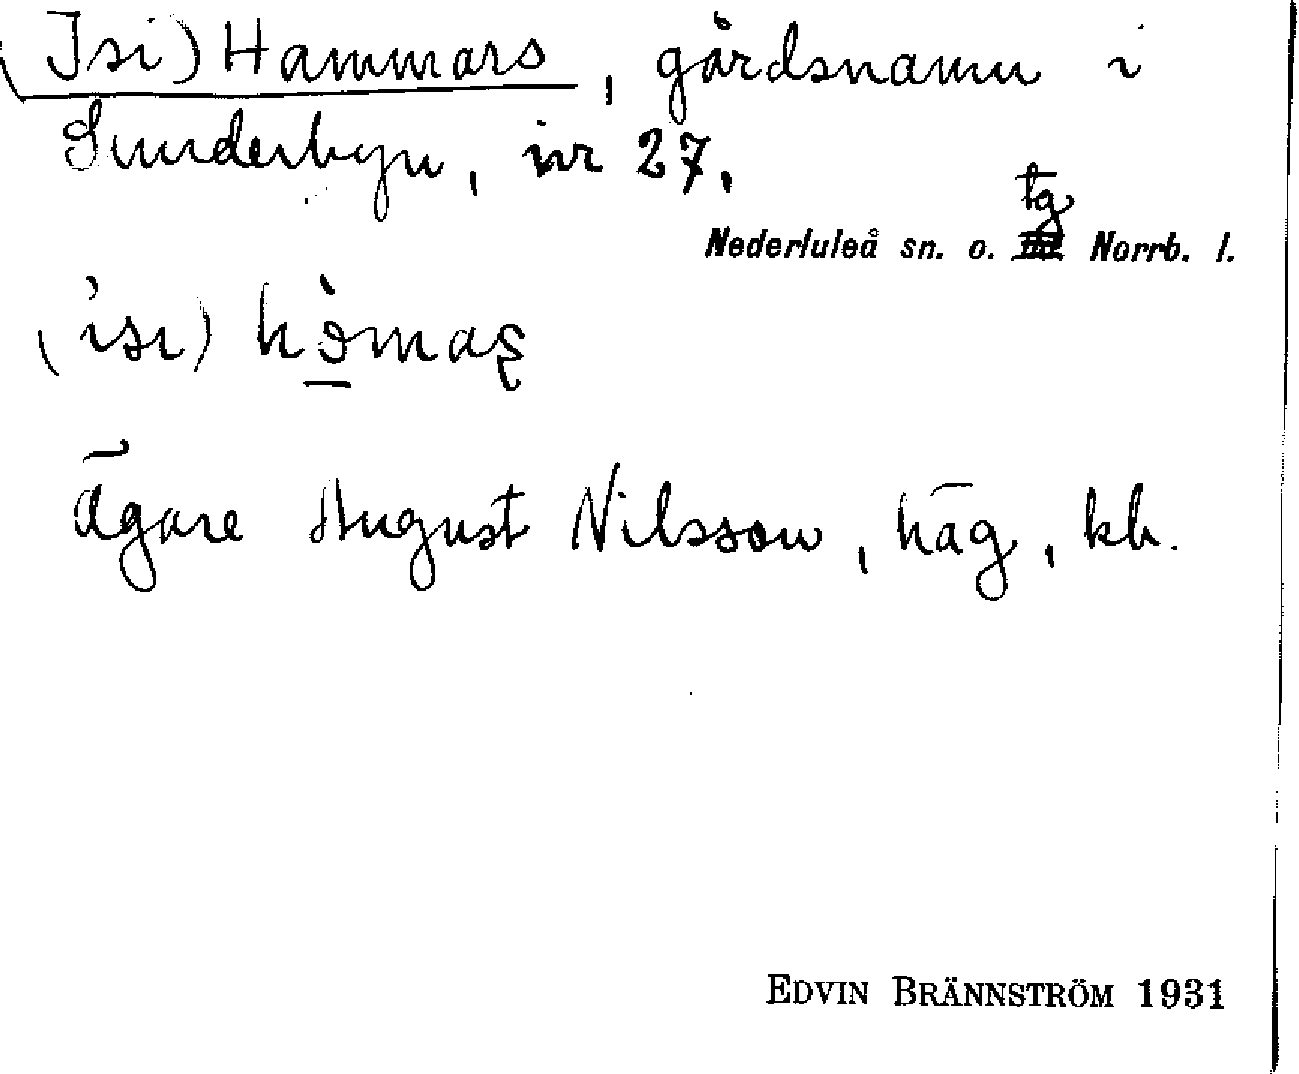 (Isi) Hammars, gårdsnamn i
Sunderbyn, nr 27.
tg
Nederluleå sn. o. Norrb. l.
(ìsı) hò̱maş
Ägare August Nilsson, häg, kb.
EDVIN BRÄNNSTRÖM 1931